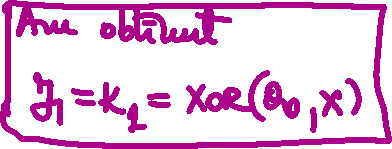 Am obținut
J₁ = K₁ = XOR(Q₀, X)